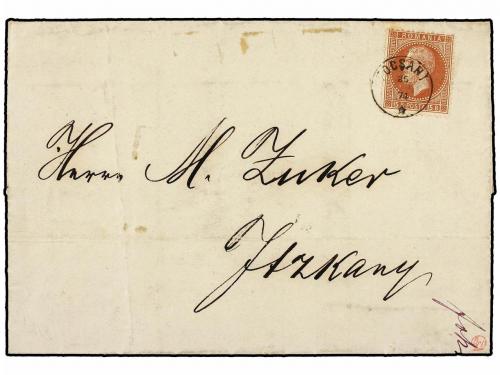 ROMANIA
FOCSANI
25
74
Herrn M. Zuker
Itzkany